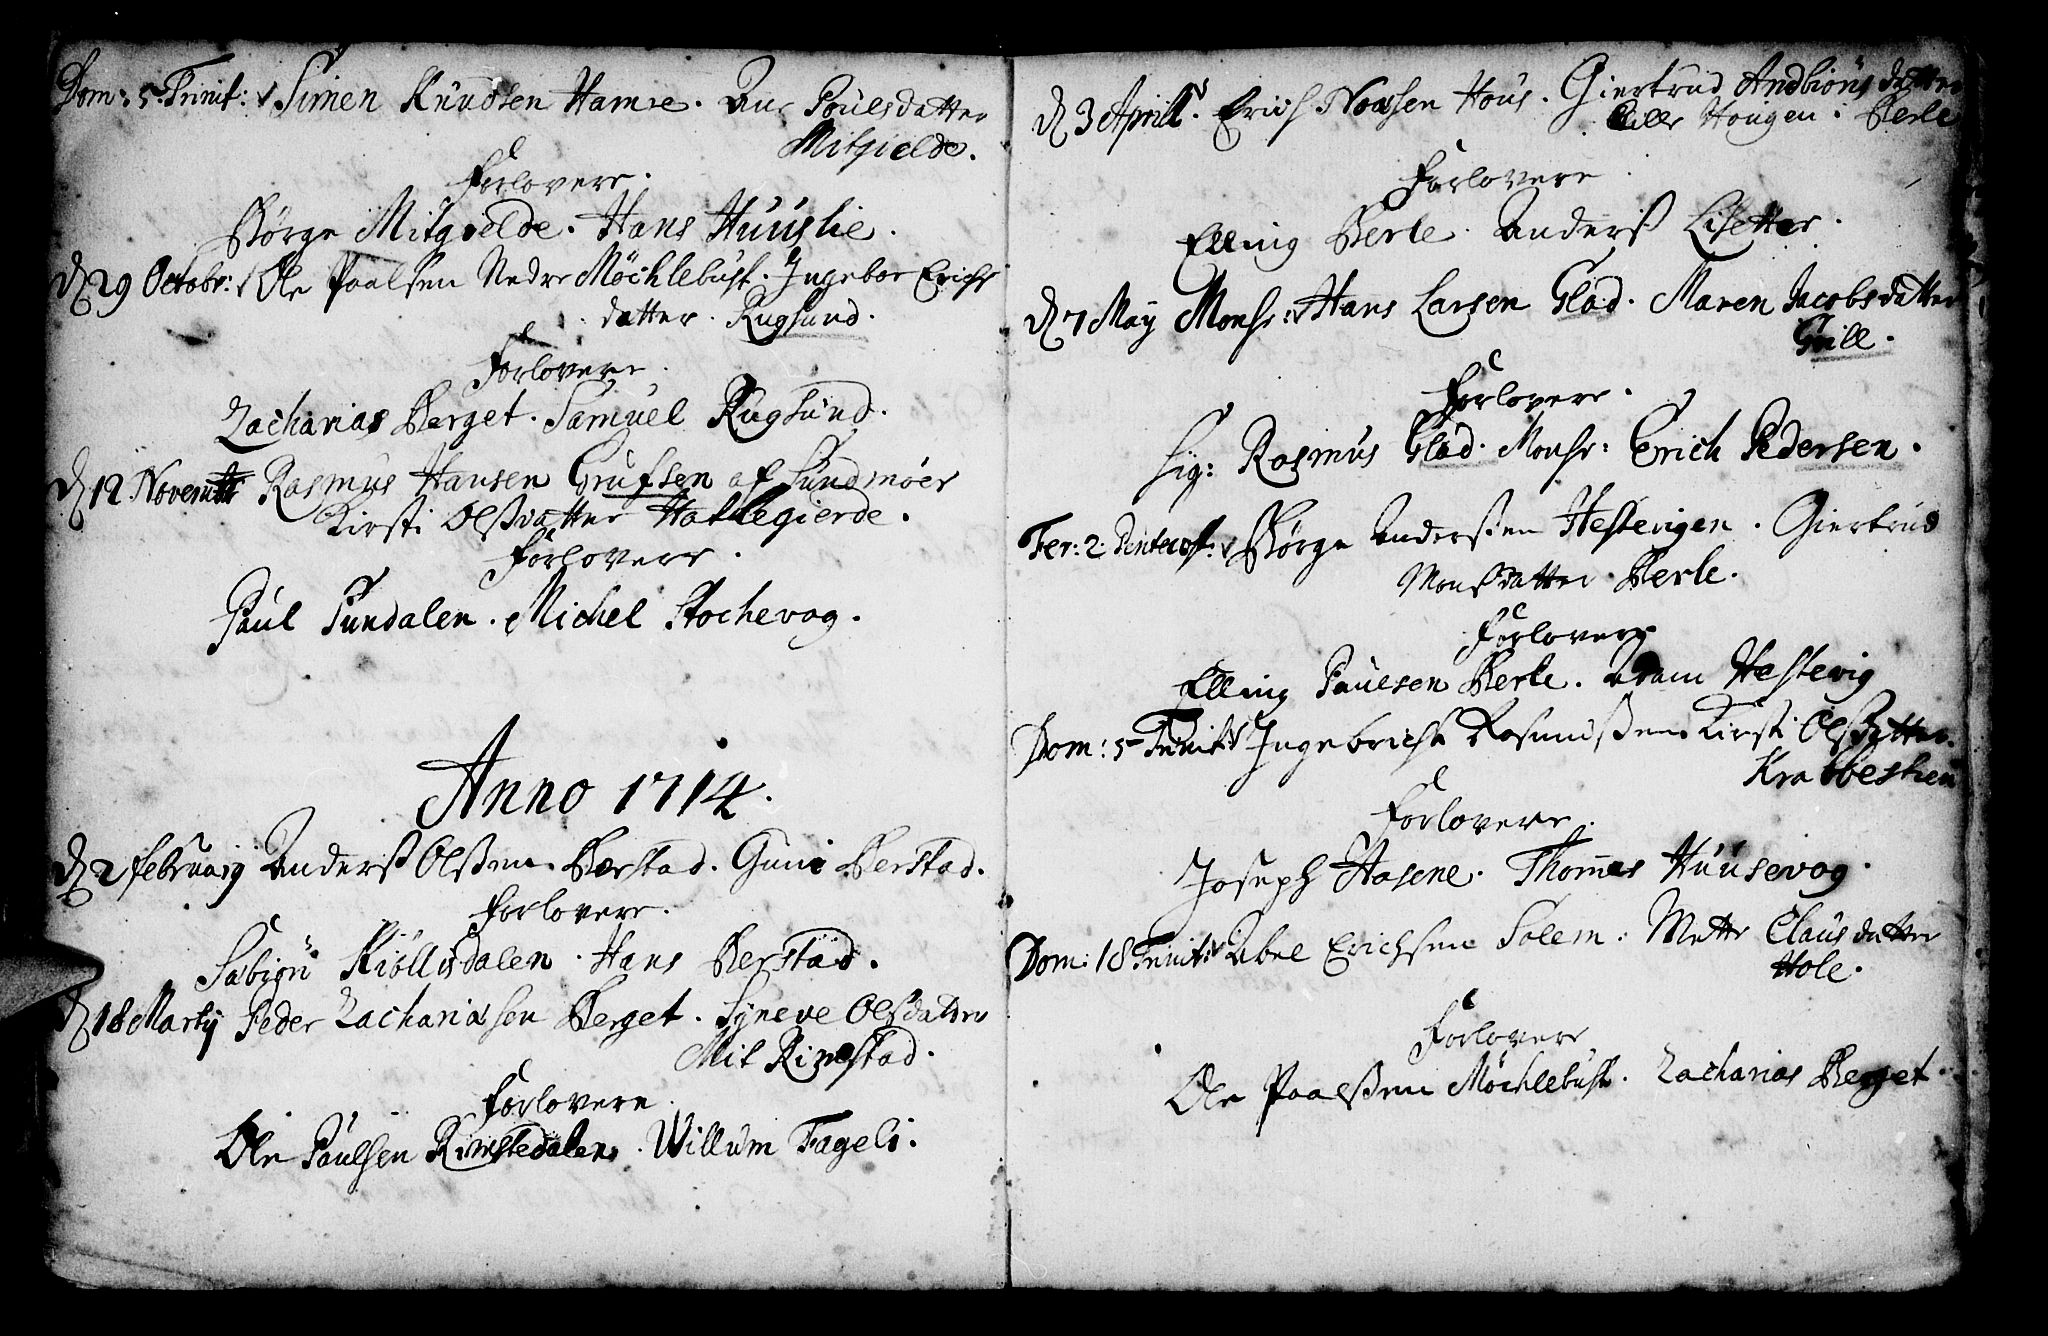 Dom: 5. Trinit: Simen Knudsen Hamre. Ane Poulsdatter
Mitgielde.
Forlovere.
Børge Mitgielde. Hans Huuslie.
D 29 Octobr: Ole Paalsen Nedre Möchlebust. Ingebor Erichs
datter. Rugsund.
Forlovere.
Zacharias Berget. Samuel Rugsund.
D 12 Novembr Rasmus Hansen Grufsen af Sundmöer
Kirsti Olsdatter Hallegierde.
Forlovere.
Paul Sundalen. Michel Stochevog.
Anno 1714.
D 2 februarij Anderß Olßen Berstad. Guni Berstad.
Forlovere.
Sabiøn Kiöllisdalen. Hans Berstad.
D 18 Martij Peder Zachariasen Berget. Syneve Olsdatter
Mit Rimstad.
Forlovere.
Ole Paulsen Rimstedalen. Willum Fageli.
D 3 Aprill. Erich Hous. Giertrud Andbiörnsdatter
Haugen i Berle
Forlovere.
Elling Berle. Anderß Lisetter.
D 7 May Monsr: Hans Larsen Glad. Maren Jacobsdatter
Grill.
Forlovere.
Sig: Rasmus Glad. Monsr: Erich Pedersen.
Fer: 2. Pentecost: Børge Anderßen Hestevigen. Giertrud
Monßdatter Berle.
Forlovere
Elling Paulsen Berle. Adam Hestevig
Dom: 5 Trinit: Ingebricht Rasmußen Kirsti Olßdatter.
Krabbestien
Forlovere.
Joseph Hasene. Thom̅es Huusevog.
Dom: 18 Trinit: Abel Erichsen Solem: Mette Clausdatter
Hole.
Forlovere
Ole Paalßen Möchlebust. Zacharias Berget.